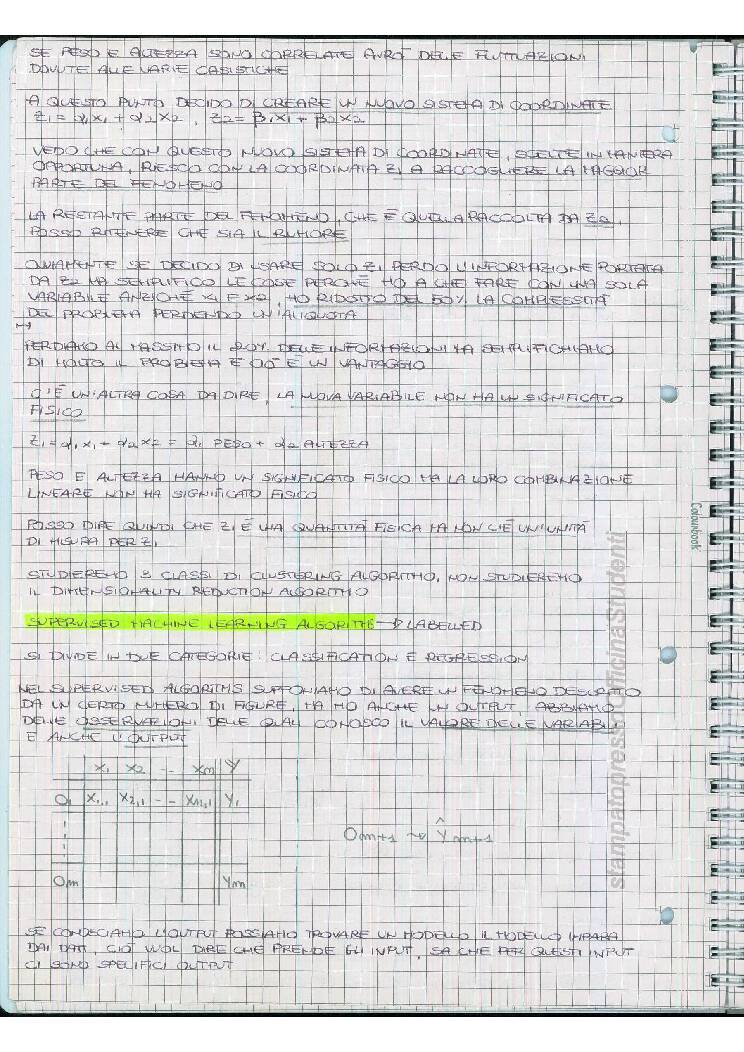 SE PESO E ALTEZZA SONO CORRELATE AVRÒ DELLE FLUTTUAZIONI
DOVUTE ALLE VARIE CASISTICHE
A QUESTO PUNTO DECIDO DI CREARE UN NUOVO SISTEMA DI COORDINATE
Z1 = α1 X1 + α2 X2 , Z2 = β1 X1 + β2 X2
VEDO CHE CON QUESTO NUOVO SISTEMA DI COORDINATE, SCELTE IN MANIERA
OPPORTUNA, RIESCO CON LA COORDINATA Z1 A RACCOGLIERE LA MAGGIOR
PARTE DEL FENOMENO
LA RESTANTE PARTE DEL FENOMENO, CHE È QUELLA RACCOLTA DA Z2,
POSSO RITENERE CHE SIA IL RUMORE
OVVIAMENTE SE DECIDO DI USARE SOLO Z1 PERDO L'INFORMAZIONE PORTATA
DA Z2 MA SEMPLIFICO LE COSE PERCHÉ HO A CHE FARE CON UNA SOLA
VARIABILE ANZICHÉ X1 E X2, HO RIDOTTO DEL 50% LA COMPLESSITÀ
DEL PROBLEMA PERDENDO UN'ALIQUOTA
PERDIAMO AL MASSIMO IL 20% DELLE INFORMAZIONI MA SEMPLIFICHIAMO
DI MOLTO IL PROBLEMA E CIÒ È UN VANTAGGIO
C'È UN'ALTRA COSA DA DIRE, LA NUOVA VARIABILE NON HA UN SIGNIFICATO
FISICO
Z1 = α1 X1 + α2 X2 = α1 PESO + α2 ALTEZZA
PESO E ALTEZZA HANNO UN SIGNIFICATO FISICO MA LA LORO COMBINAZIONE
LINEARE NON HA SIGNIFICATO FISICO
POSSO DIRE QUINDI CHE Z1 È UNA QUANTITÀ FISICA MA NON C'È UN'UNITÀ
DI MISURA PER Z1
STUDIEREMO 3 CLASSI DI CLUSTERING ALGORITMO, NON STUDIEREMO
IL DIMENSIONALITY REDUCTION ALGORITMO
SUPERVISED MACHINE LEARNING ALGORITMS → LABELLED
SI DIVIDE IN DUE CATEGORIE: CLASSIFICATION E REGRESSION
NEL SUPERVISED ALGORITMS SUPPONIAMO DI AVERE UN FENOMENO DESCRITTO
DA UN CERTO NUMERO DI FIGURE, MA HO ANCHE UN OUTPUT, ABBIAMO
DELLE OSSERVAZIONI DELLE QUALI CONOSCO IL VALORE DELLE VARIABILI
E ANCHE L'OUTPUT
X1 X2 -- Xm Y
O1 X1,1 X2,1 -- Xm,1 Y1
Om+1 ~> Ŷm+1
Om Ym
SE CONOSCIAMO L'OUTPUT POSSIAMO TROVARE UN MODELLO. IL MODELLO IMPARA
DAI DATI, CIÒ VUOL DIRE CHE PRENDE GLI INPUT, SA CHE PER QUESTI INPUT
CI SONO SPECIFICI OUTPUT
Colourbook